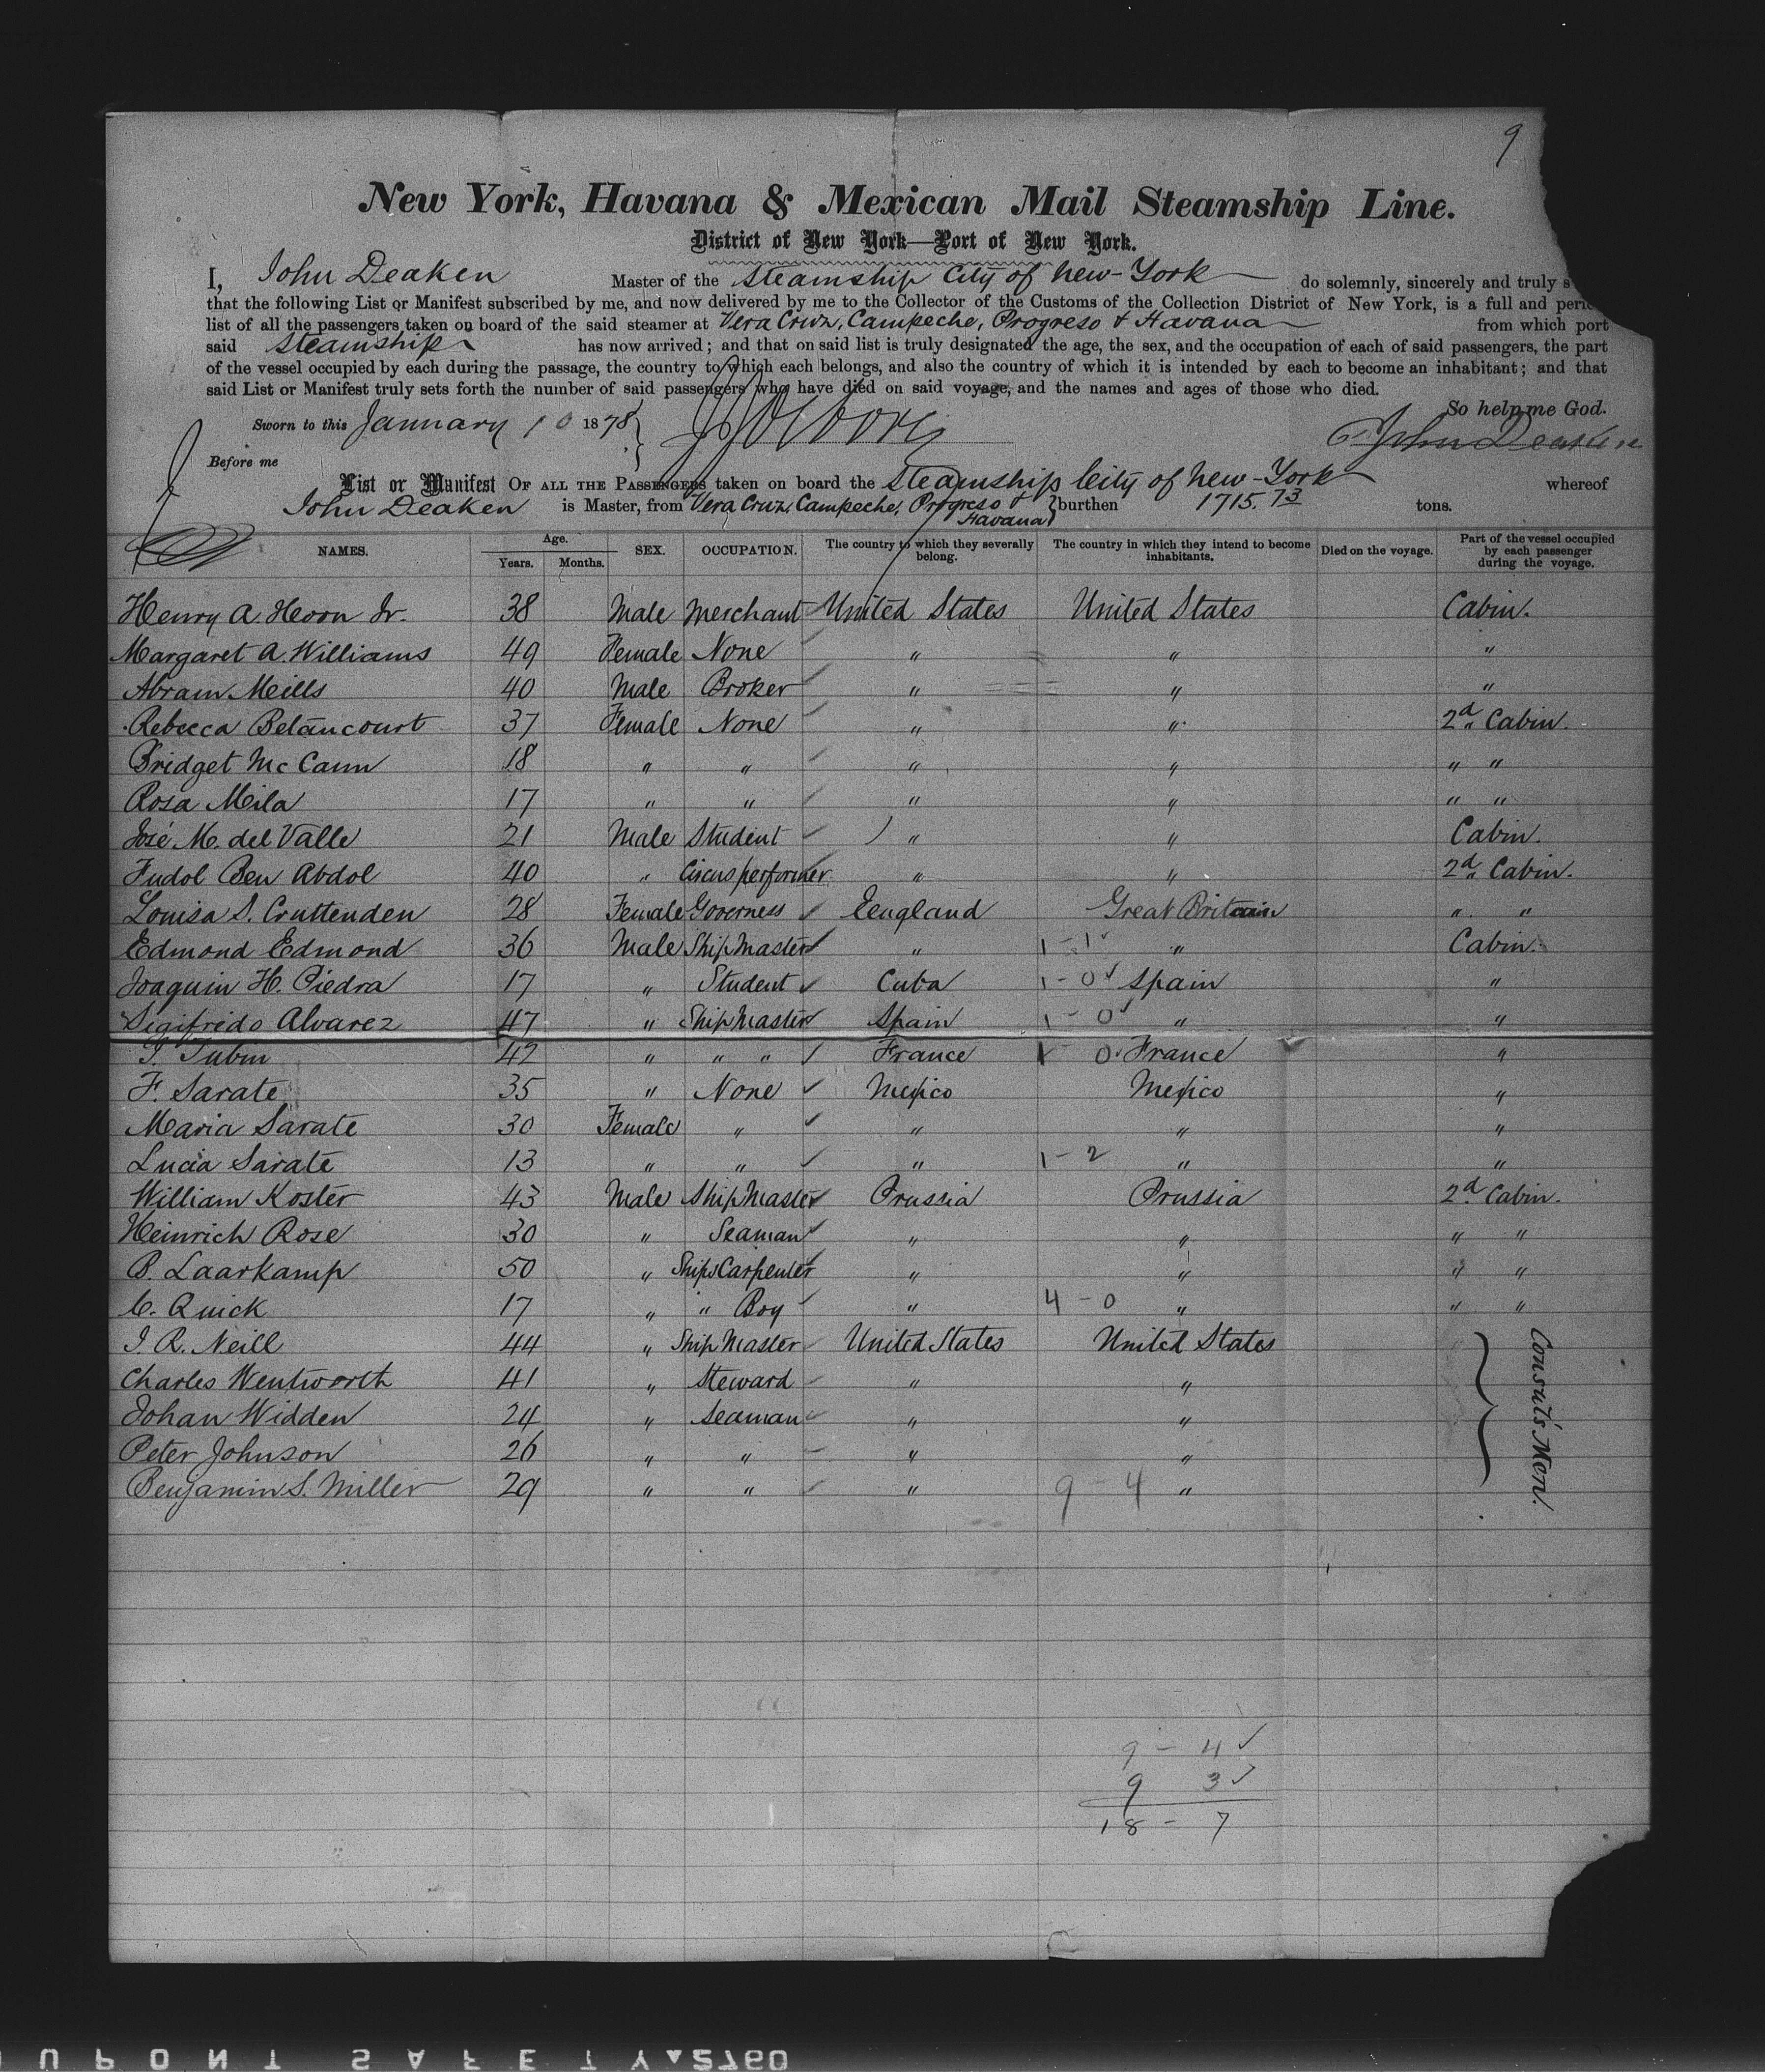 9
New York, Havana & Mexican Mail Steamship Line.
District of New York—Port of New York.
I, John Deaken Master of the Steamship City of New-York do solemnly, sincerely and truly
that the following List or Manifest subscribed by me, and now delivered by me to the Collector of the Customs of the Collection District of New York, is a full and
list of all the passengers taken on board of the said steamer at Vera Cruz, Campeche, Progreso & Havana from which port
said Steamship has now arrived; and that on said list is truly designated the age, the sex, and the occupation of each of said passengers, the part
of the vessel occupied by each during the passage, the country to which each belongs, and also the country of which it is intended by each to become an inhabitant; and that
said List or Manifest truly sets forth the number of said passengers who have died on said voyage, and the names and ages of those who died.
So help me God.
Sworn to this January 10 1878 John Deaken
Before me
List or Manifest OF ALL THE PASSENGERS taken on board the Steamship City of New-York whereof
John Deaken is Master, from Vera Cruz, Campeche, Progreso & Havana burthen 1715.73 tons.
NAMES. Age. Years. Months. SEX. OCCUPATION. The country to which they severally belong. The country in which they intend to become inhabitants. Died on the voyage. Part of the vessel occupied by each passenger during the voyage.
Henry A. Hoorn Jr. 38 Male Merchant United States United States Cabin.
Margaret A. Williams 49 Female None " " "
Abram Meills 40 Male Broker " " "
Rebecca Betancourt 37 Female None " " 2d Cabin.
Bridget McCann 18 " " " " " "
Rosa Meila 17 " " " " " "
José M. del Valle 21 Male Student " " Cabin.
Fudol Ben Abdol 40 " Circus performer " " 2d Cabin.
Louisa S. Cruttenden 28 Female Governess England Great Britain " "
Edmond Edmond 36 Male Ship Master " 1-1 " Cabin.
Joaquin H. Piedra 17 " Student Cuba 1-0 Spain "
Sigifredo Alvarez 47 " Ship Master Spain 1-0 " "
Tubin 42 " " " France 1 0 France "
F. Sarate 35 " None Mexico Mexico "
Maria Sarate 30 Female " " " "
Lucia Sarate 13 " " " 1-2 " "
William Koster 43 Male Ship Master Prussia Prussia 2d Cabin.
Heinrich Rose 30 " Seaman " " " "
B. Laarkamp 50 " Ships Carpenter " " " "
C. Quick 17 " " Boy " 4-0 " " "
J. R. Neill 44 " Ship Master United States United States Consul's Men.
Charles Wentworth 41 " Steward " "
Johan Widden 24 " Seaman " "
Peter Johnson 26 " " " "
Benjamin S. Miller 29 " " " 9 4 "
9 - 4
9 3
18 - 7
DUPONT SAFETY 2760